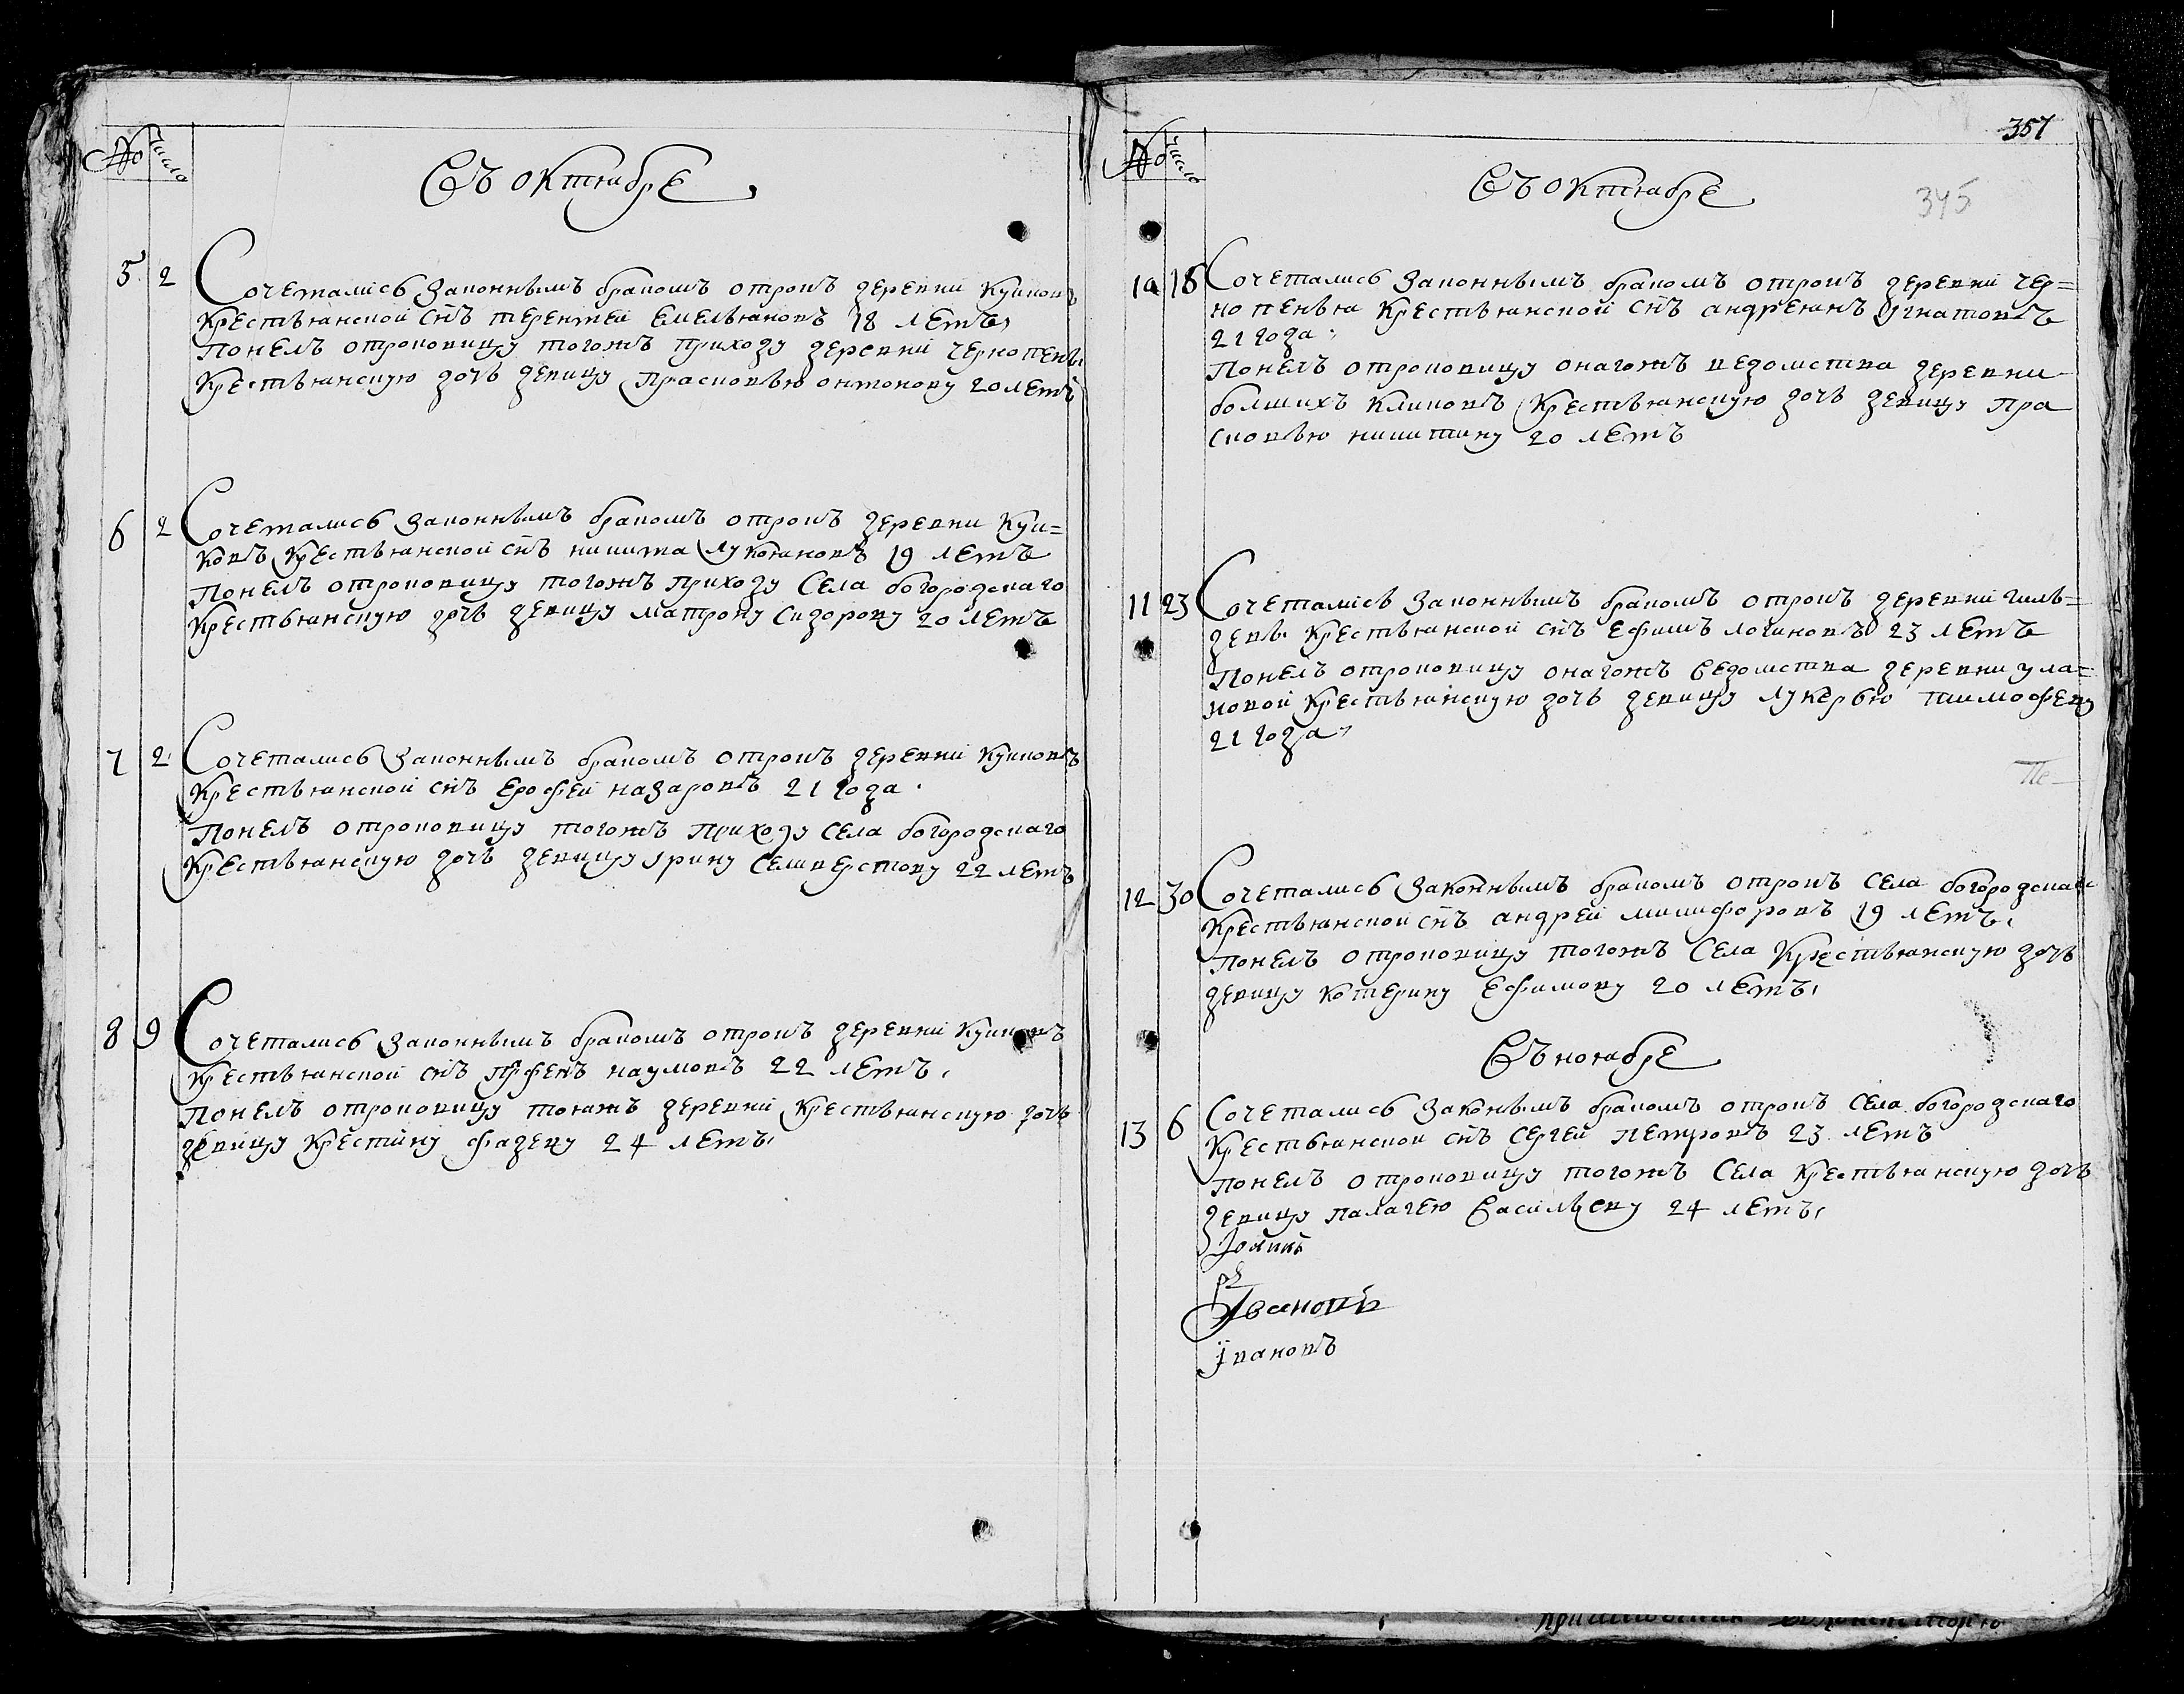 No Число
Въ октябре
5 2 Сочетались Законнымъ бракомъ отрокъ деревни Куиковъ
Крестьянской снъ терентеи Емельяновъ 18 летъ
Понелъ отроковицу тогожъ приходу деревни черно пенья
Крестьянскую дочь девицу Прасковью онтонову 20 летъ
6 2 Сочетались Законнымъ бракомъ отрокъ деревни Куи=
ковъ Крестьянской снъ никита Лукояновъ 19 летъ
Понелъ отроковицу тогожъ приходу Села богородскаго
Крестьянскую дочь девицу матрону Сидорову 20 летъ
7 2 Сочетались Законнымъ бракомъ отрокъ деревни Куиковъ
Крестьянской снъ Ерофей назаровъ 21 года
Понелъ отроковицу тогожъ Приходу Села богородскаго
Крестьянскую дочь девицу ирину Селиверстову 22 летъ
8 9 Сочетались Законнымъ бракомъ отрокъ деревни Куиковъ
Крестьянской снъ наумовъ 22 летъ
Понелъ отроковицу тояжъ деревни Крестьянскую дочь
девицу Крестину фадеву 24 летъ
357
No Число
Въ октябре
345
10 18 Сочетались Законнымъ бракомъ отрокъ деревни чер=
но пенья Крестьянской снъ андреянъ Игнатовъ
21 года
Понелъ отроковицу онагожъ ведомства деревни
болшихъ Климовъ Крестьянскую дочь девицу Пра
сковью никитину 20 летъ
11 23 Сочетались Законнымъ бракомъ отрокъ деревни гиль=
девы Крестьянской снъ Ефимъ логиновъ 23 летъ
Понелъ отроковицу онагожъ Ведомства деревни ула=
новой Крестьянскую дочь девицу лукерью тимофеву
21 года
Пе
12 30 Сочетались Законнымъ бракомъ отрокъ Села богородскаго
Крестьянской снъ андрей микифоровъ 19 летъ
Понелъ отроковицу тогожъ Села Крестьянскую дочь
девицу Котерину Ефимову 20 летъ
Въ ноябре
13 6 Сочетались Законымъ бракомъ отрокъ Села богородскаго
Крестьянской снъ Сергеи Петровъ 23 летъ
Понелъ отроковицу тогожъ Села Крестьянскую дочь
девицу Палагею Васильеву 24 летъ
Ивановъ
Iвановъ